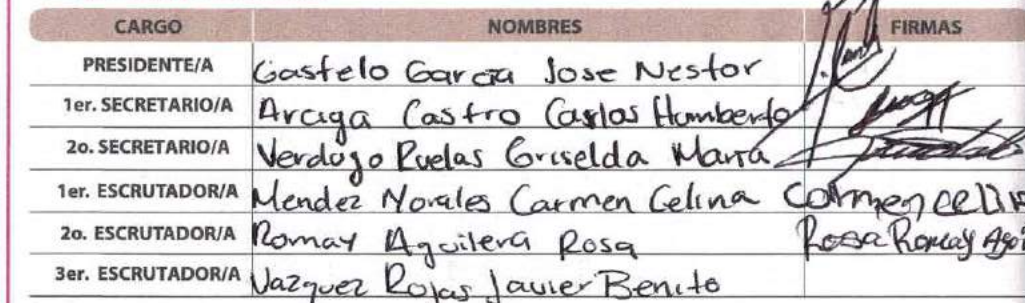 CARGO NOMBRES FIRMAS
PRESIDENTE/A Gastelo Garcia Jose Nestor
1er. SECRETARIO/A Araga Castro Carlos Humberto
2o. SECRETARIO/A Verdugo Ruelas Griselda Maria
1er. ESCRUTADOR/A Mendez Morales Carmen Celina Carmen Celin
2o. ESCRUTADOR/A Romay Aguilera Rosa Rosa Romay Agui
3er. ESCRUTADOR/A Vazquez Rojas Javier Benito